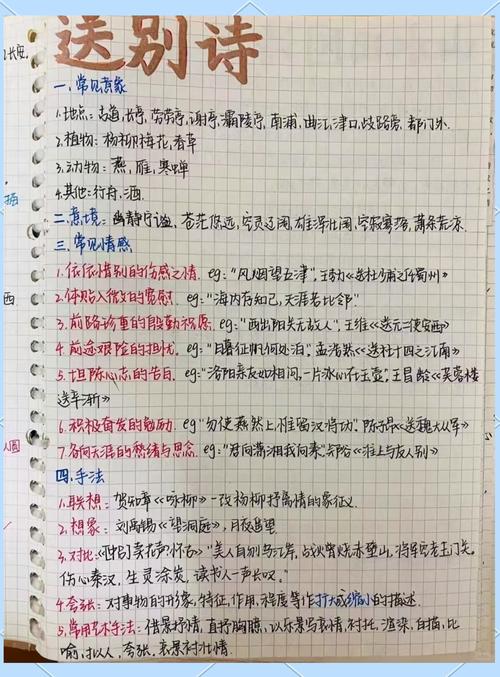 送别诗
长安.
一、常见意象
1.地点：古道,长亭,劳劳亭,谢亭,灞陵亭,南浦,曲江,津口,歧路旁,都门外.
2.植物：杨柳,梅花,香草
3.动物：燕,雁,寒蝉
4.其他：行舟,酒.
二、意境：幽静宁谧,苍茫悠远,空灵辽阔,雄浑壮阔,空寂寒,萧条荒凉.
三、常见情感
1.依依惜别的伤感之情. eg："风烟望五津",王勃《送杜少甫之任蜀州》
西
2.体贴入微的宽慰. eg："海内存知己,天涯若比邻."
3.前路珍重的殷勤祝愿. eg："西出阳关无故人",王维《送元二使安西》
4.前途艰险的担忧. eg："日暮征帆何处泊",孟浩然《送杜十四之江南》
5.坦陈心志的告白. eg："洛阳亲友如相问,一片冰心在玉壶",王昌龄《芙蓉楼
送辛渐》
6.积极奋发的勉励. eg："勿使燕然上,惟留汉将功".陈子昂《送魏大从军》
人圆
7.各向天涯的愁绪与思念. eg："君向潇湘我向秦",郑谷《淮上与友人别》
四、手法
1.联想：贺知章《咏柳》—改杨柳抒离情的象征义.
2.想象：刘禹锡《望洞庭》,月夜遥望
3.对比：《卖花声·怀古》"美人自刎乌江岸,战火曾烧赤壁山,将军空老玉门关.
伤心秦汉,生灵涂炭,读书人一声长叹."
4.夸张：对事物的形象,特征,作用,程度等作扩大或缩小的描述.
5.常用艺术手法：借景抒情,直抒胸臆,以乐景写哀情,衬托,渲染,白描,比
喻,拟人,夸张,哀景衬壮情.